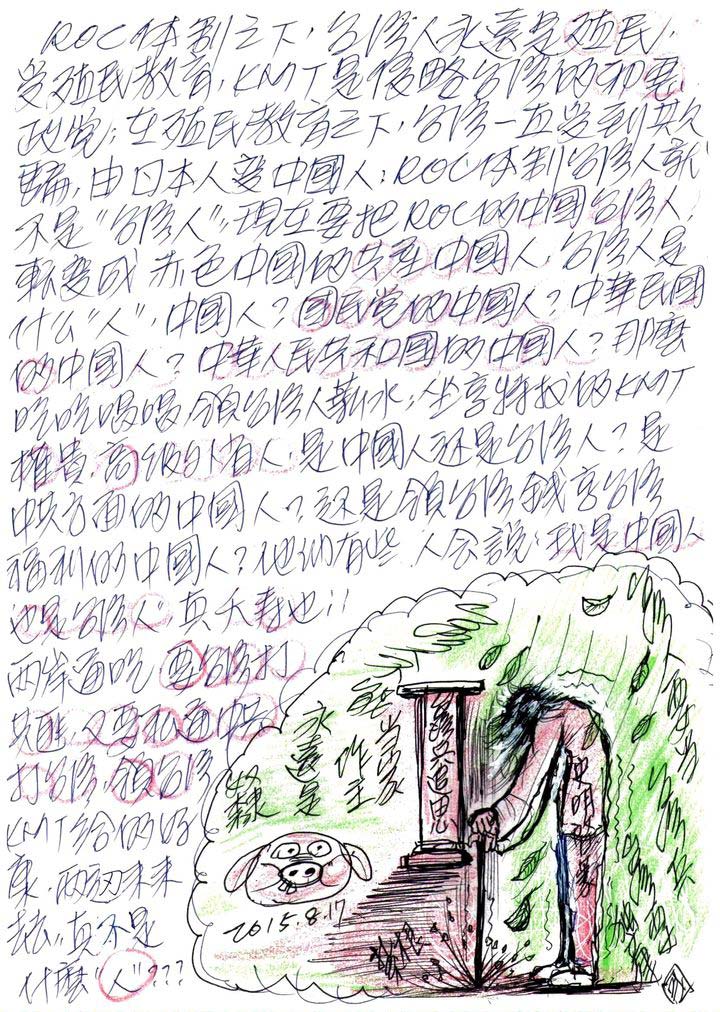 ROC体制之下,台湾人永遠是殖民,
受殖民教育,KMT是侵略台湾的和
政党;在殖民教育之下,台湾一直受到欺
騙,由日本人变中國人;ROC体制台湾人就
不是“台湾人”;現在要把ROC的中国台湾人,
転变成赤色中國的共產中國人,台湾人是
什么“人”,中國人?國民党的中國人?中華民國
的中國人?中華人民共和國的中國人?那麼
吃吃喝喝領台湾人薪水,坐享特权的KMT
權貴,高級外省人,是中國人还是台湾人?是
中共方面的中國人?还是領台湾錢享台湾
福利的中國人?他们有些人会說:我是中國人
也是台湾人,真夭寿也!!
两岸通吃,要台湾打
共匪,又要私通中共
打台湾,領台湾
KMT給的好
康,两边来来
去去,真不是
什麼“人”???
永遠是
當家
作主
2015.8.17